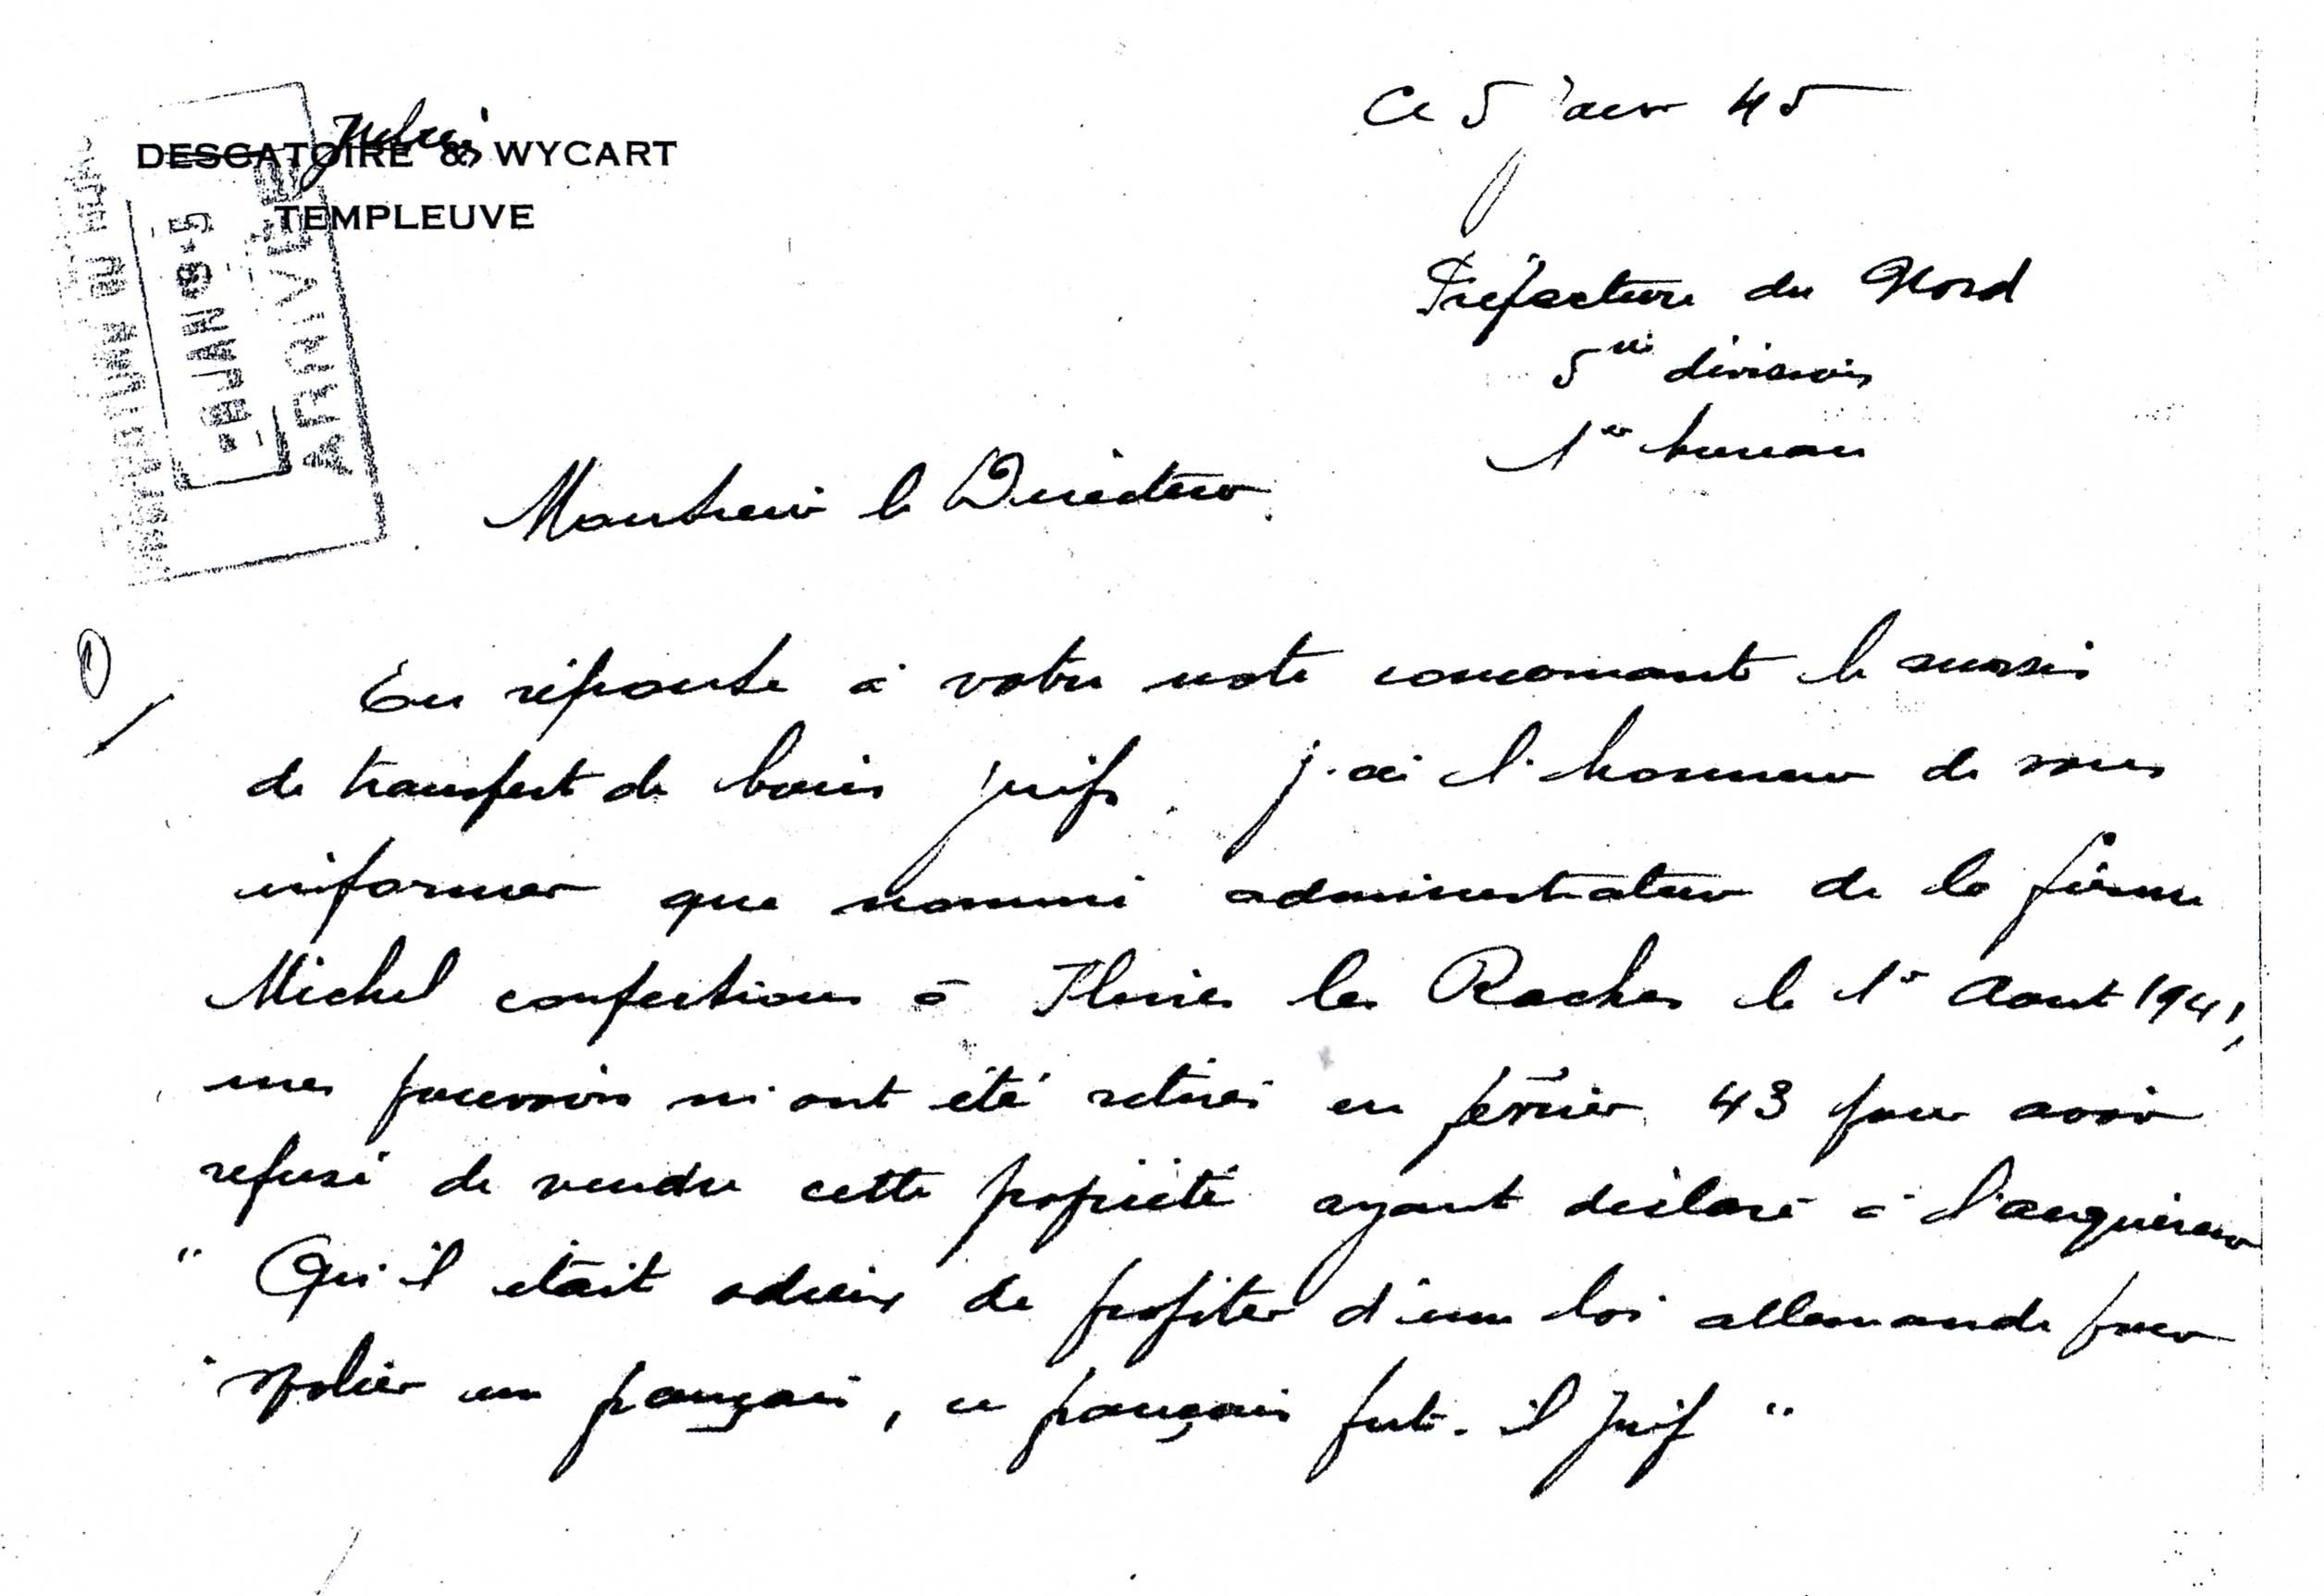 DESCATOIRE & WYCART
TEMPLEUVE
ARRIVÉE
Ce 5 janv 45
Préfecture du Nord
5me division
1er bureau
Monsieur le Directeur
En réponse à votre note concernant le
de transfert de biens juifs j'ai l'honneur de vous
informer que nommé administrateur de la firme
Michel confections à Flines les Raches le 1er Aout 1941,
mes pouvoirs m'ont été retirés en février 43 pour avoir
refusé de vendre cette propriété ayant déclaré à l'acquéreur
" Qu'il était odieux de profiter d'une loi allemande pour
" spolier un français, ce français fut-il juif "